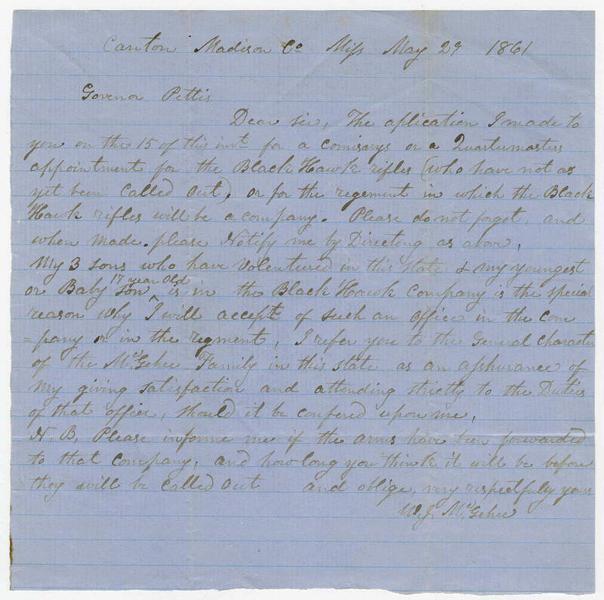 Canton Madison Co Miss May 29 1861
Govenor Pettis
Dear sir, The aplication I made to
you on the 15 of this inst for a comisarys or a Quartermasters
appointment for the Black Hawk rifles (who have not as
yet been Called out), or for the regement in which the Black
Hawk rifles will be a company. Please do not foget, and
when made. please Notify me by Directing as abov,
My 3 sons who have Volentured in this State & my youngest
17 year old
or Baby Son ^ is in the Black Hawk Company is the special
reason why I will accept of such an office in the Com
=pany or in the regment, I refer you to the General Character
of the McGehee Family in this state as an assurance of
My giving Satisfaction and attending strictly to the Duties
of that office, should it be confered upon me,
N. B. Please informe me if the arms have been forwarded
to that Company, and how long you think it will be before
they will be Called out and oblige, very respectfuly yours
McGehee